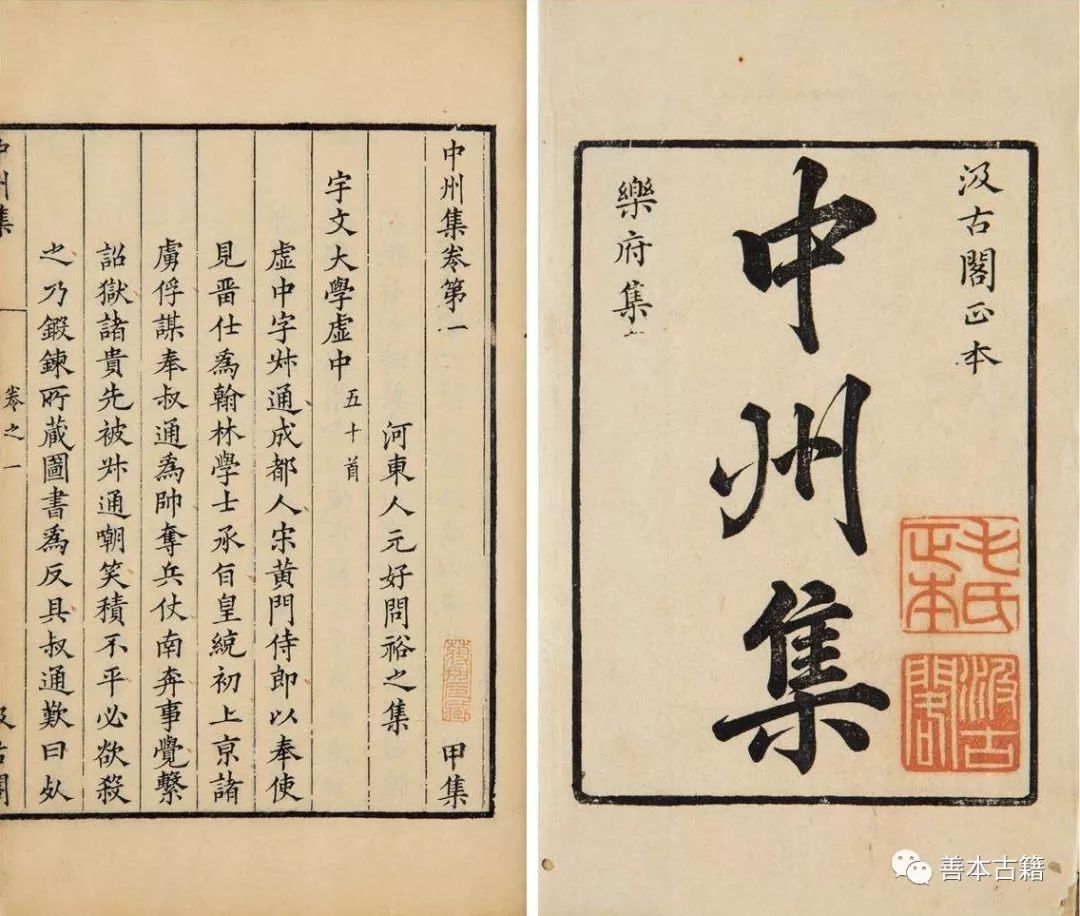 汲古閣正本
中州集
樂府集
毛氏正本
汲古閣
中州集卷第一 甲集
河東人元好問裕之集
宇文大學虛中 五十首
虛中字叔通成都人宋黃門侍郎以奉使
見畱仕爲翰林學士承㫖皇統初上亰諸
虜俘謀奉叔通爲帥奪兵仗南奔事覺繫
詔獄諸貴先被叔通嘲笑積不平必欲殺
之乃鍛鍊所蔵圖書爲反具叔通歎曰死
中州集 卷之一 汲古閣
善本古籍